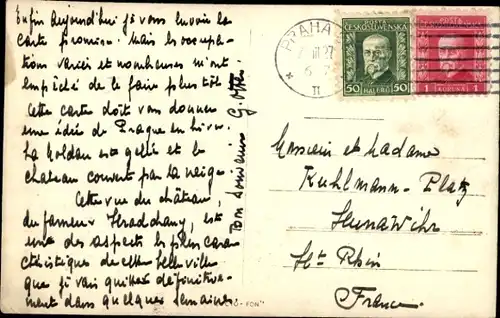 Enfin aujourd'hui je vous envoie la
carte promise. Mais les occupa-
tions variés et nombreuses m'ont
empêché de le faire plus tôt.
Cette carte doit vous donner
une idée de Prague en hiver.
La Moldau est gelée et le
chateau couvert par la neige.
Cette vue du château,
du fameux Hradchany, est
une des aspects les plus cara-
ctéristiques de cette belle ville
que je vais quitter définitive-
ment dans quelques semaines.
Bon souvenir
PRAHA
III 27
II
POSTA
CESKOSLOVENSKA
50 HALERU 50
POSTA
1 KORUNA 1
Monsieur et Madame
Kuhlmann-Platz
Hunawihr
Ht Rhin
France